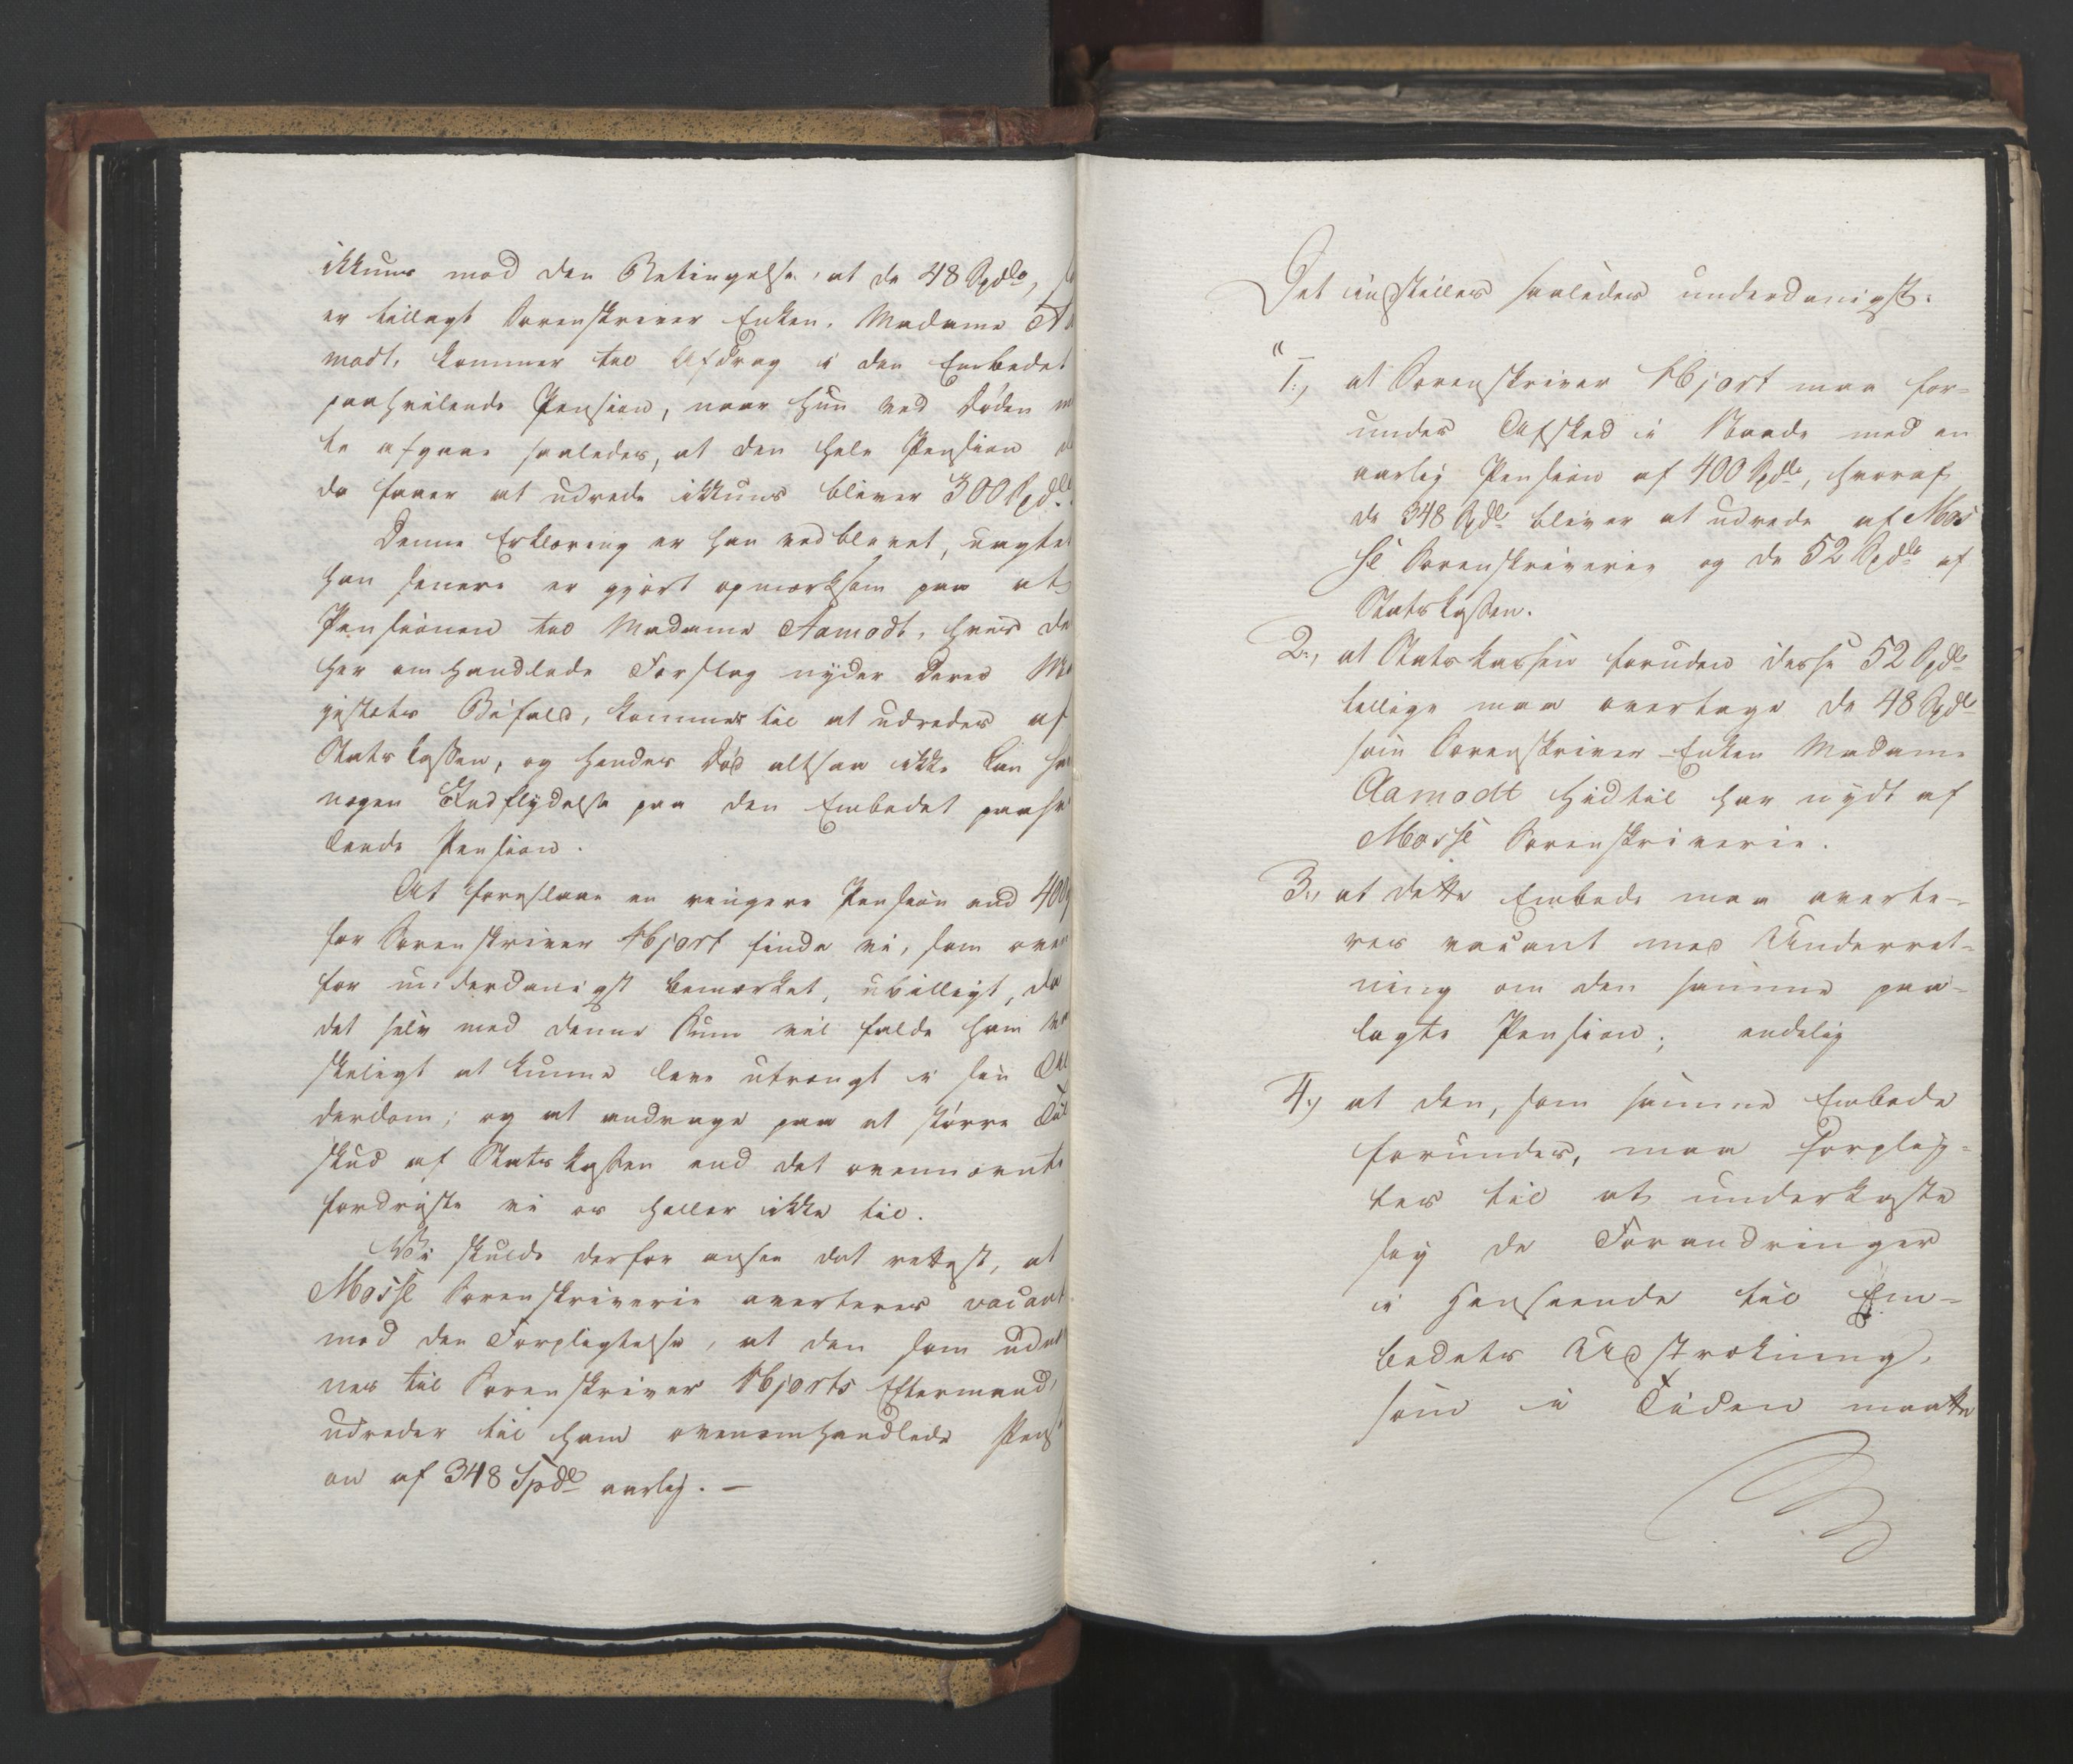 ikkuns mod den Betingelse, at de 48 Spdlr,
er tillagt Sorenskriver Enken, Madame Aa
modt, kommer til Afdrag i den Embedet
paahvilende Pension, naar hun ved Døden m
te afgaae saaledes, at den hele Pension
da faaer at udrede ikkuns bliver 300 Spdlr.
Denne Erklæring er han vedblevet, uagtet
han senere er gjort opmærksom paa at
Pensionen til Madame Aamodt, hvis de
her omhandlede Forslag nyder Deres Ma
jestæts Bifald, kommer til at udredes af
Statskassen, og hendes Død altsaa ikke kan ha
nogen Indflydelse paa den Embedet paahvi
lende Pension.
At foreslaae en ringere Pension end 400
for Sorenskriver Hjort finde vi, som oven
for underdanigst bemærket, ubilligt, da
det selv med denne Sum vil falde ham van
skeligt at kunne leve utrængt i sin Al
derdom; og at andrage paa et større Til
skud af Statskassen end det ovennævnte
fordriste vi os heller ikke til.
Vi skulde derfor ansee det rettest, at
Mosse Sorenskriverie averteres vacant
med den Forpligtelse, at den som udnæv
nes til Sorenskriver Hjorts Eftermand,
udreder til ham ovenomhandlede Pensi
on af 348 Spdlr aarlig. —
Det indstilles saaledes underdanigst:
"1., at Sorenskriver Hjort maa for-
undes Afsked i Naade med en
aarlig Pension af 400 Spdlr, hvoraf
de 348 Spdlr bliver at udrede af Mos
se Sorenskriverie og de 52 Spdlr af
Statskassen.
2., at Statskassen foruden disse 52 Spdlr
tillige maa overtage de 48 Spdlr
som Sorenskriver-Enken Madame
Aamodt hidtil har nydt af
Mosse Sorenskriverie.
3., at dette Embede maa averte-
res vacant med Underret-
ning om den samme paa-
lagte Pension; endelig
4., at den, som samme Embede
forundes, maa forplig-
tes til at underkaste
sig de Forandringer
i Henseende til Em-
bedets Udstrækning,
som i Tiden maatte